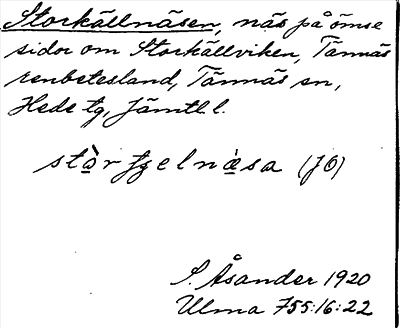 Storkällnäsen, näs på ömse
sidor om Storkällviken, Tännäs
renbetesland, Tännäs sn,
Hede tg, Jämtl. l.
stɑ̀r tʒelnæ̀sa (JÖ)
S. Åsander 1920
Ulma 755:16:22